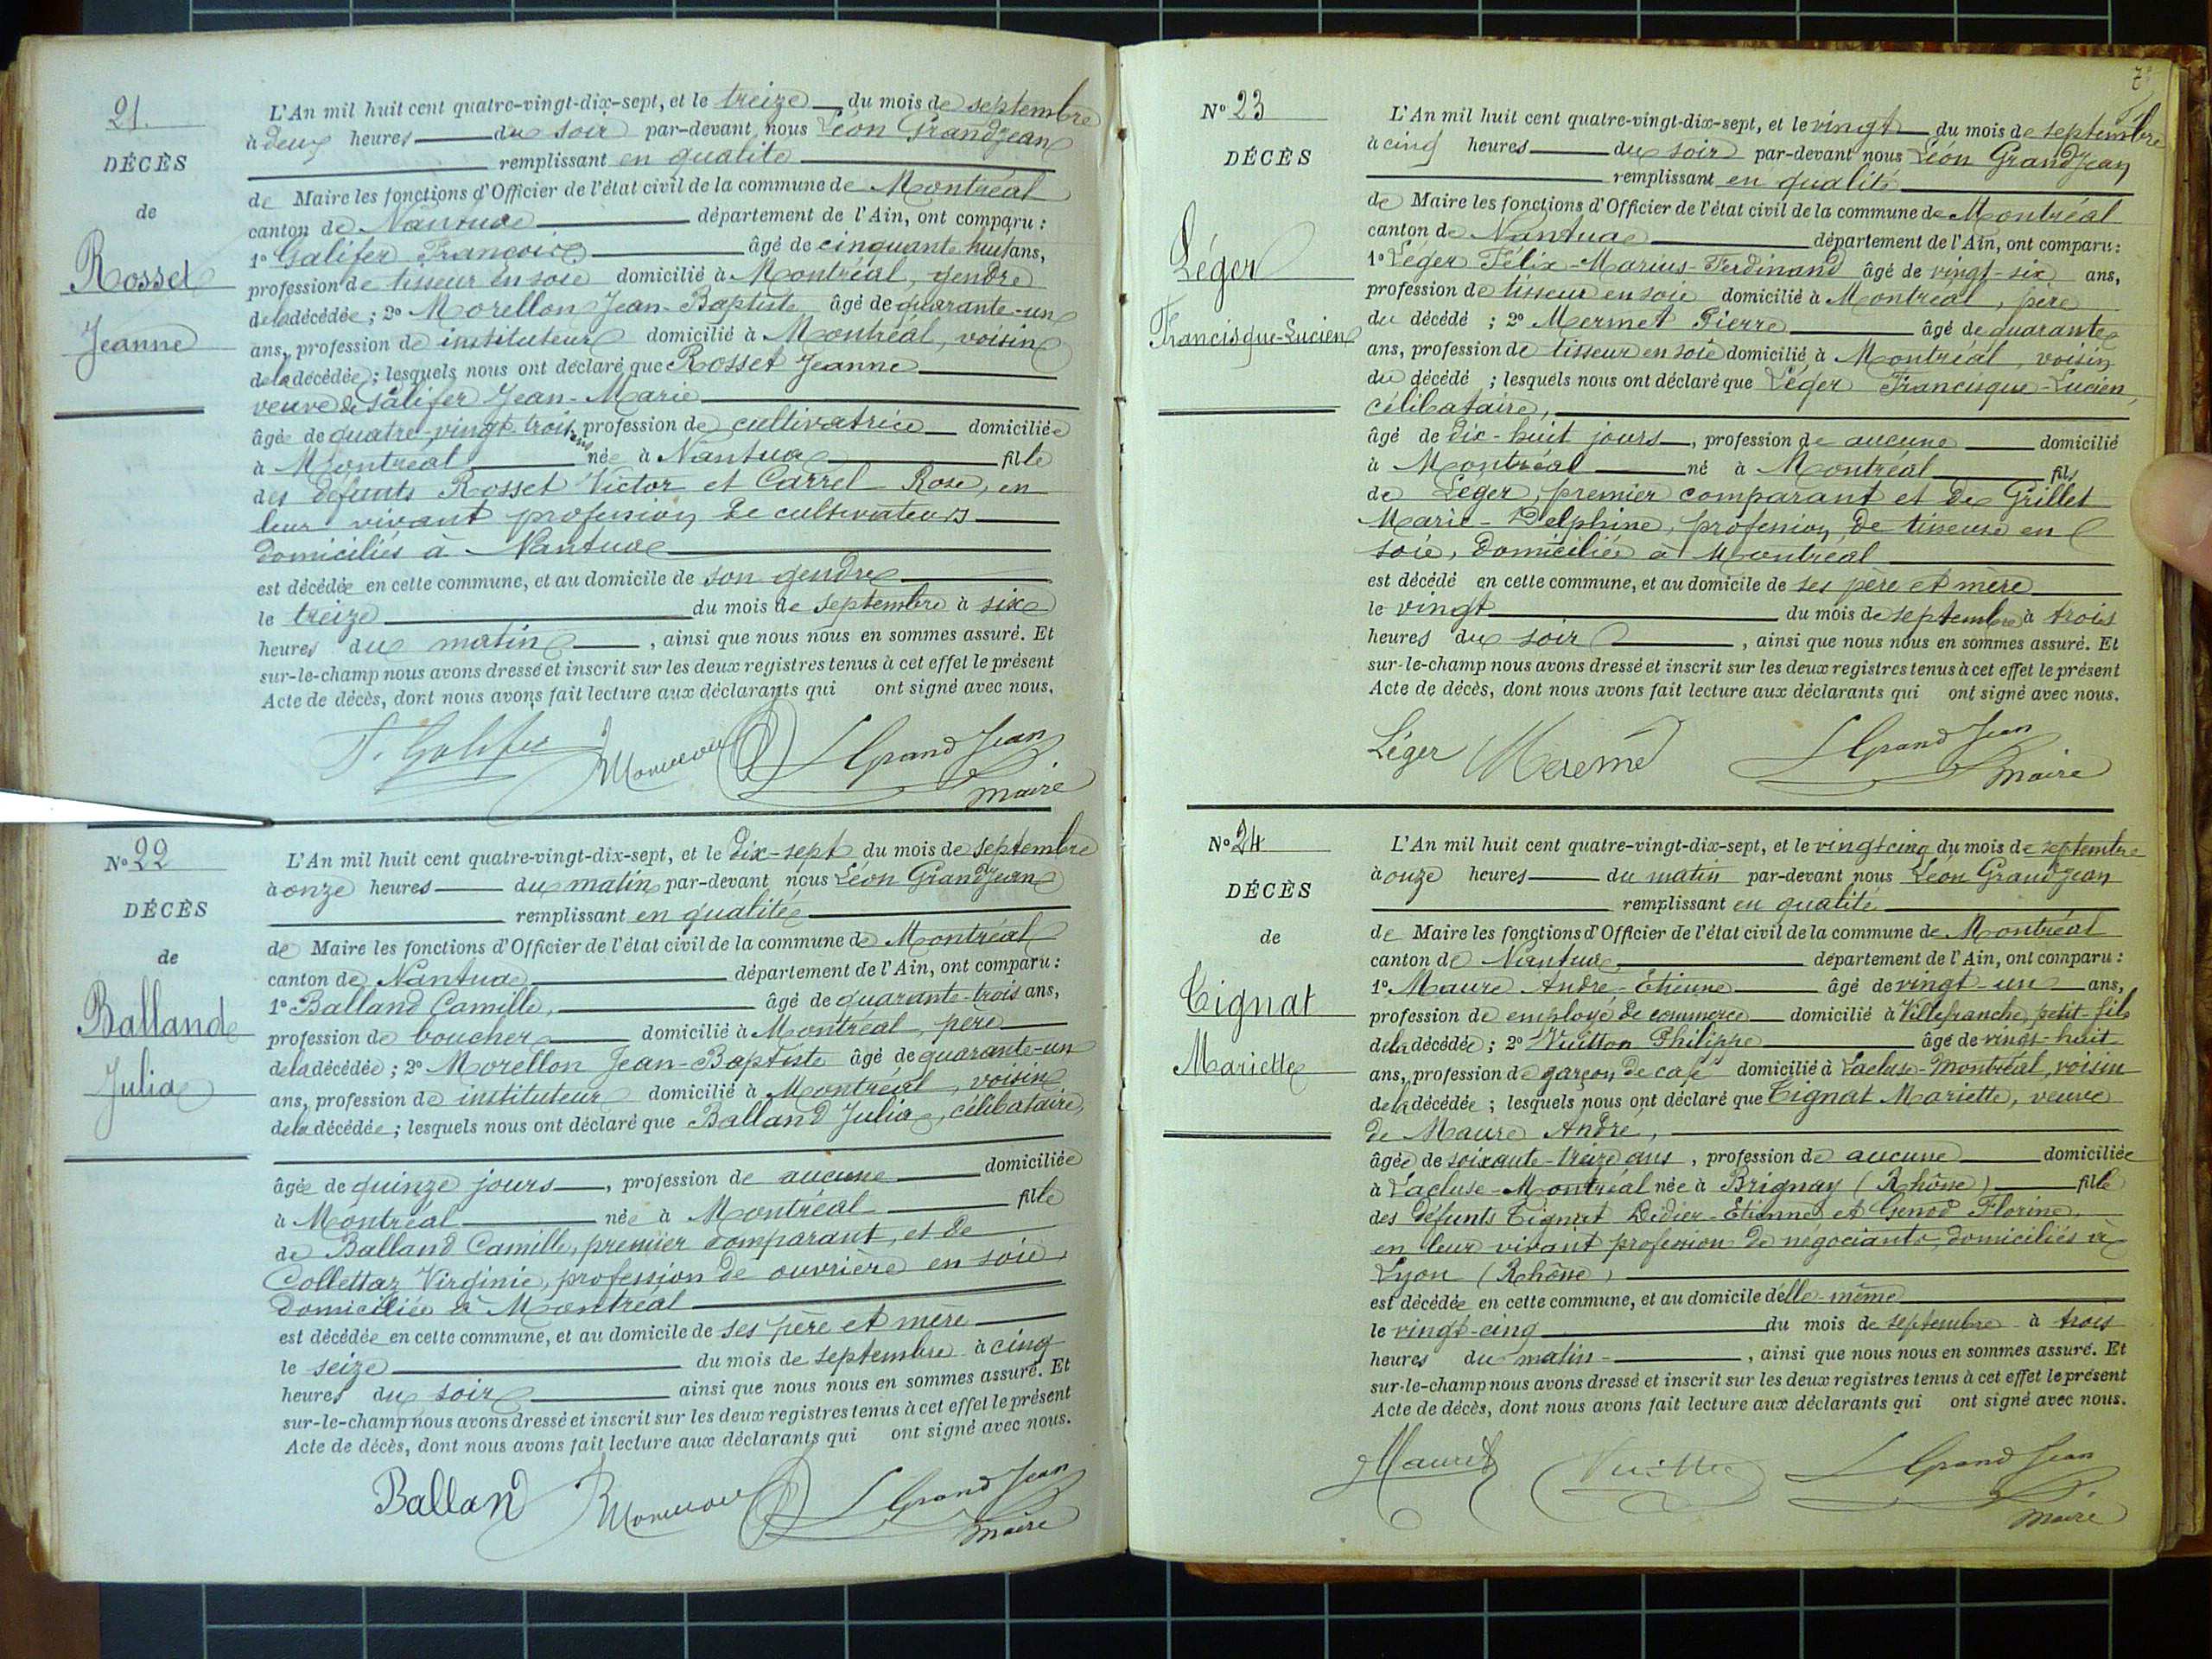 21.
DÉCÈS
de
Rosset
Jeanne
L'An mil huit cent quatre-vingt-dix-sept, et le treize du mois de septembre
à deux heures du soir par-devant nous Léon Grandjean
remplissant en qualité
de Maire les fonctions d'Officier de l'état civil de la commune de Montréal
canton de Nantua département de l'Ain, ont comparu :
1º Galifer François âgé de cinquante huit ans,
profession de tisseur en soie domicilié à Montréal, gendre
de la décédée ; 2º Morellon Jean-Baptiste âgé de quarante-un
ans, profession de instituteur domicilié à Montréal, voisin
de la décédée ; lesquels nous ont déclaré que Rosset Jeanne
veuve de Galifer Jean-Marie
âgée de quatre-vingt-trois ans, profession de cultivatrice domiciliée
à Montréal née à Nantua fille
des défunts Rosset Victor et Carrel Rose, en
leur vivant profession de cultivateurs
domiciliés à Nantua
est décédée en cette commune, et au domicile de son gendre
le treize du mois de septembre à six
heures du matin, ainsi que nous nous en sommes assuré. Et
sur-le-champ nous avons dressé et inscrit sur les deux registres tenus à cet effet le présent
Acte de décès, dont nous avons fait lecture aux déclarants qui ont signé avec nous.
F. Galifer L Grand Jean
maire
Nº 22
DÉCÈS
de
Balland
Julia
L'An mil huit cent quatre-vingt-dix-sept, et le dix-sept du mois de septembre
à onze heures du matin par-devant nous Léon Grandjean
remplissant en qualité
de Maire les fonctions d'Officier de l'état civil de la commune de Montréal
canton de Nantua département de l'Ain, ont comparu :
1º Balland Camille, âgé de quarante-trois ans,
profession de boucher domicilié à Montréal, père
de la décédée ; 2º Morellon Jean-Baptiste âgé de quarante-un
ans, profession de instituteur domicilié à Montréal, voisin
de la décédée ; lesquels nous ont déclaré que Balland Julia, célibataire,
âgée de quinze jours, profession de aucune domiciliée
à Montréal née à Montréal fille
de Balland Camille, premier comparant, et de
Collettaz Virginie, profession de ouvrière en soie,
domiciliée à Montréal
est décédée en cette commune, et au domicile de ses père et mère
le seize du mois de septembre à cinq
heures du soir ainsi que nous nous en sommes assuré. Et
sur-le-champ nous avons dressé et inscrit sur les deux registres tenus à cet effet le présent
Acte de décès, dont nous avons fait lecture aux déclarants qui ont signé avec nous.
Balland L Grand Jean
maire
Nº 23
DÉCÈS
Léger
Francisque-Lucien
L'An mil huit cent quatre-vingt-dix-sept, et le vingt du mois de septembre
à cinq heures du soir par-devant nous Léon Grandjean
remplissant en qualité
de Maire les fonctions d'Officier de l'état civil de la commune de Montréal
canton de Nantua département de l'Ain, ont comparu :
1º Léger Félix-Marius-Ferdinand âgé de vingt-six ans,
profession de tisseur en soie domicilié à Montréal, père
du décédé ; 2º Mermet Pierre âgé de quarante
ans, profession de tisseur en soie domicilié à Montréal, voisin
du décédé ; lesquels nous ont déclaré que Léger Francisque-Lucien,
célibataire,
âgé de dix-huit jours, profession de aucune domicilié
à Montréal né à Montréal fils
de Léger, premier comparant et de Grillet
Marie-Delphine, profession de tisseuse en
soie, domiciliée à Montréal
est décédé en cette commune, et au domicile de ses père et mère
le vingt du mois de septembre à trois
heures du soir, ainsi que nous nous en sommes assuré. Et
sur-le-champ nous avons dressé et inscrit sur les deux registres tenus à cet effet le présent
Acte de décès, dont nous avons fait lecture aux déclarants qui ont signé avec nous.
Léger L Grand Jean
maire
Nº 24
DÉCÈS
de
Tignat
Mariette
L'An mil huit cent quatre-vingt-dix-sept, et le vingt cinq du mois de septembre
à onze heures du matin par-devant nous Léon Grandjean
remplissant en qualité
de Maire les fonctions d'Officier de l'état civil de la commune de Montréal
canton de Nantua département de l'Ain, ont comparu :
1º Maure André-Etienne âgé de vingt-un ans,
profession de employé de commerce domicilié à Villefranche, petit-fils
de la décédée ; 2º Vuitton Philippe âgé de vingt-huit
ans, profession de garçon de café domicilié à Lacluse-Montréal, voisin
de la décédée ; lesquels nous ont déclaré que Tignat Mariette, veuve
de Maure André,
âgée de soixante-treize ans, profession de aucune domiciliée
à Lacluse-Montréal née à Brignay (Rhône) fille
des défunts Tignat Didier-Etienne, et Genod Florine,
en leur vivant profession de négociants, domiciliés à
Lyon (Rhône)
est décédée en cette commune, et au domicile d'elle-même
le vingt-cinq du mois de septembre à trois
heures du matin, ainsi que nous nous en sommes assuré. Et
sur-le-champ nous avons dressé et inscrit sur les deux registres tenus à cet effet le présent
Acte de décès, dont nous avons fait lecture aux déclarants qui ont signé avec nous.
L Grand Jean
Maire